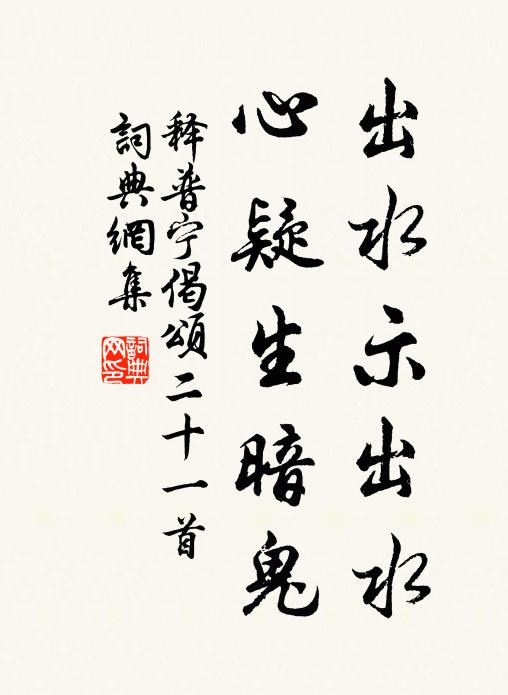 出水示出水
心疑生暗鬼
释普宁偈頌二十一首
詞典網集
詞典网印